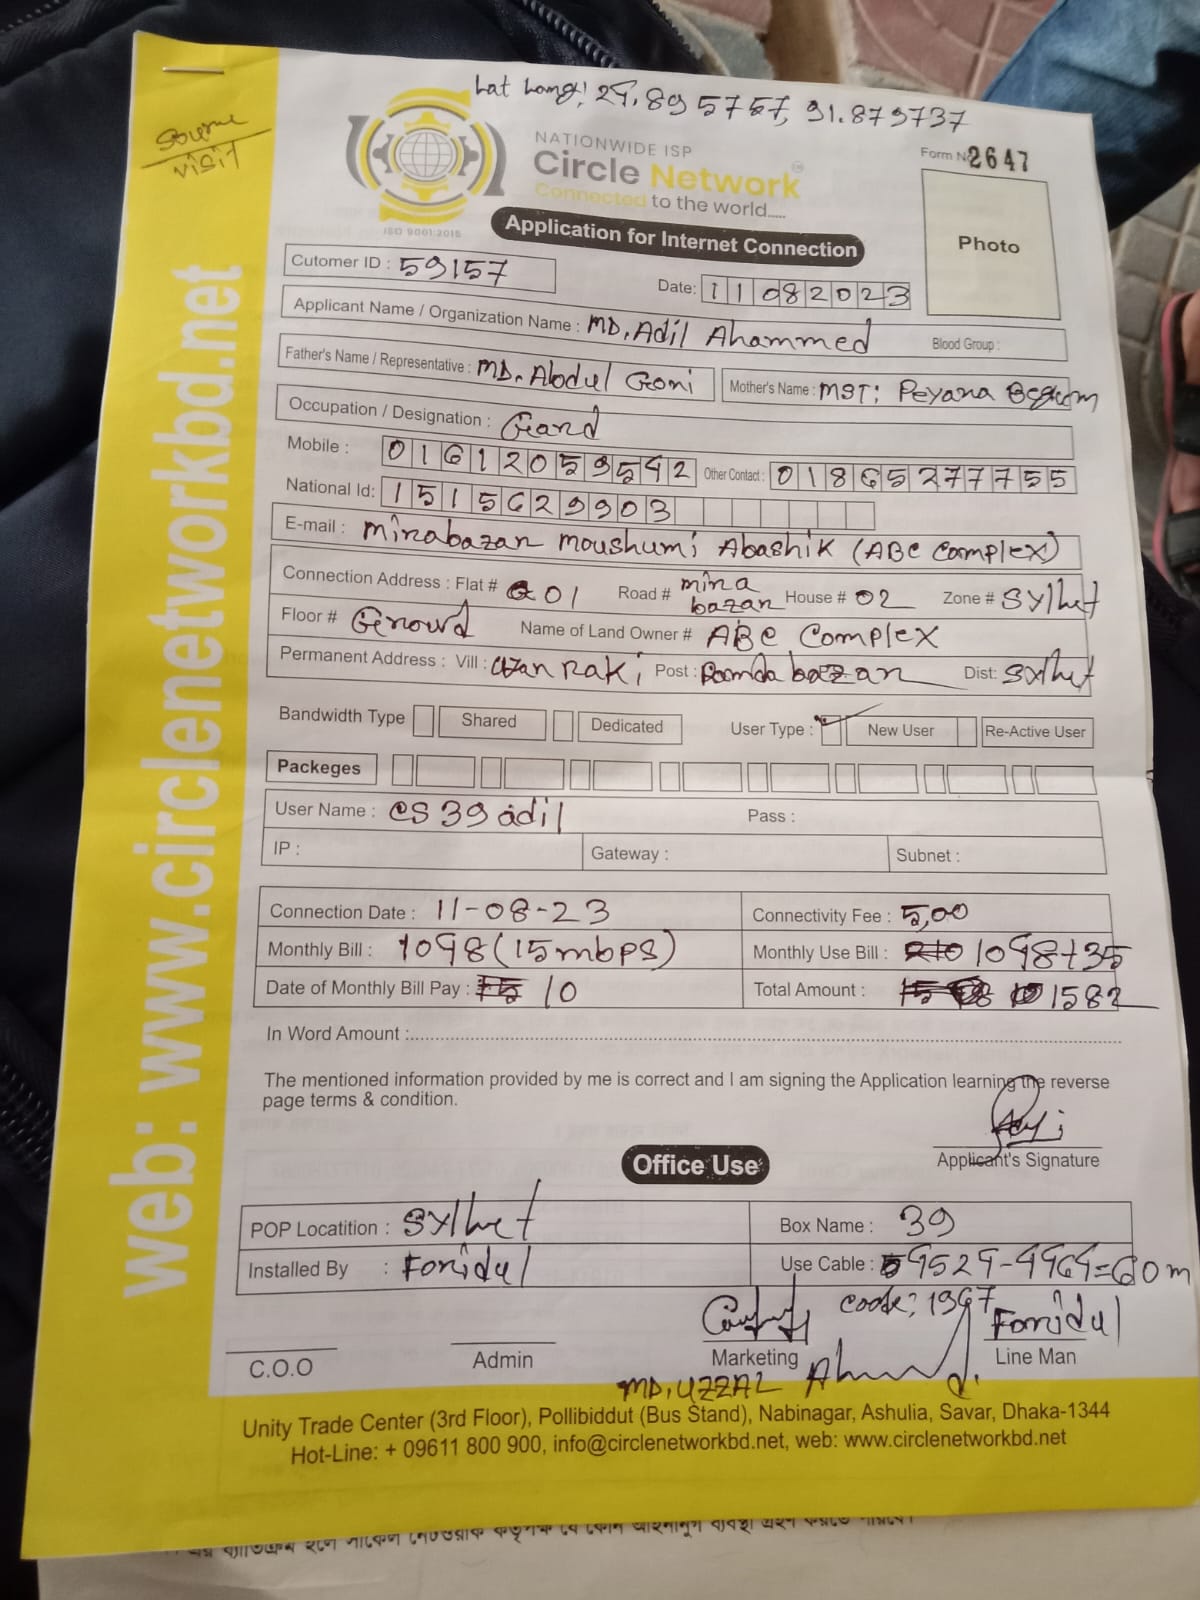 Lat Long: 24.895757, 91.879737
Source
visit
NATIONWIDE ISP
Circle Network
Connected to the world.....
ISO 9001:2015
Form No 2647
Photo
Application for Internet Connection
Cutomer ID : 59157
Date: 11082023
Applicant Name / Organization Name : MD. Adil Ahammed Blood Group :
Father's Name / Representative : MD. Abdul Goni Mother's Name : MST: Peyara Begum
Occupation / Designation : Gard
Mobile : 01612059542 Other Contact : 01865277755
National Id: 1515629903
E-mail : minabazar moushumi Abashik (ABC Complex)
Connection Address : Flat # 01 Road # mina bazar House # 02 Zone # Sylhet
Floor # Ground Name of Land Owner # ABC Complex
Permanent Address : Vill : Post : bazar Dist: Sylhet
Bandwidth Type Shared Dedicated User Type : New User Re-Active User
Packeges
User Name : CS39adil Pass :
IP : Gateway : Subnet :
Connection Date : 11-08-23 Connectivity Fee : 5,00
Monthly Bill : 1098 (15mbps) Monthly Use Bill : 1098+35
Date of Monthly Bill Pay : 10 Total Amount : 1582
In Word Amount :
The mentioned information provided by me is correct and I am signing the Application learning the reverse
page terms & condition.
Applicant's Signature
Office Use
POP Locatition : Sylhet Box Name : 39
Installed By : Foridul Use Cable : 4524-4464=60m
code: 1367
Foridul
C.O.O Admin Marketing Line Man
MD. UZZAL
Unity Trade Center (3rd Floor), Pollibiddut (Bus Stand), Nabinagar, Ashulia, Savar, Dhaka-1344
Hot-Line: + 09611 800 900, info@circlenetworkbd.net, web: www.circlenetworkbd.net
web: www.circlenetworkbd.net